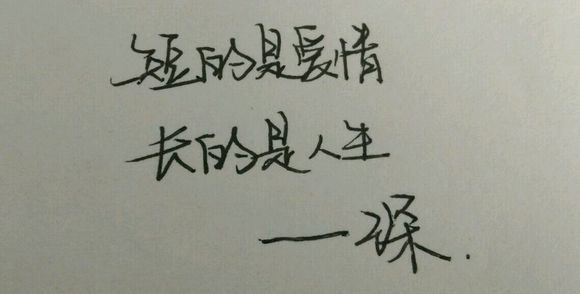 短的是爱情
长的是人生
——深.